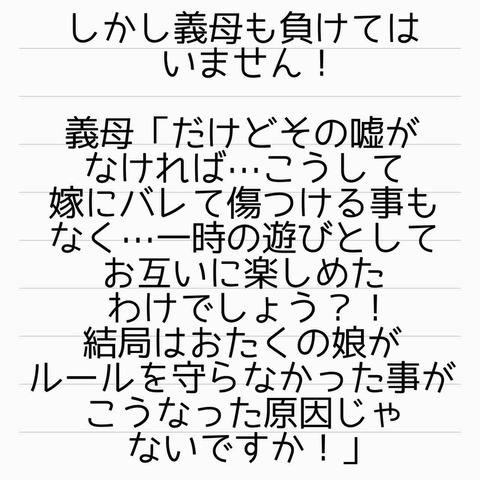 しかし義母も負けては
いません！
義母「だけどその嘘が
なければ…こうして
嫁にバレて傷つける事も
なく…一時の遊びとして
お互いに楽しめた
わけでしょう？！
結局はおたくの娘が
ルールを守らなかった事が
こうなった原因じゃ
ないですか！」